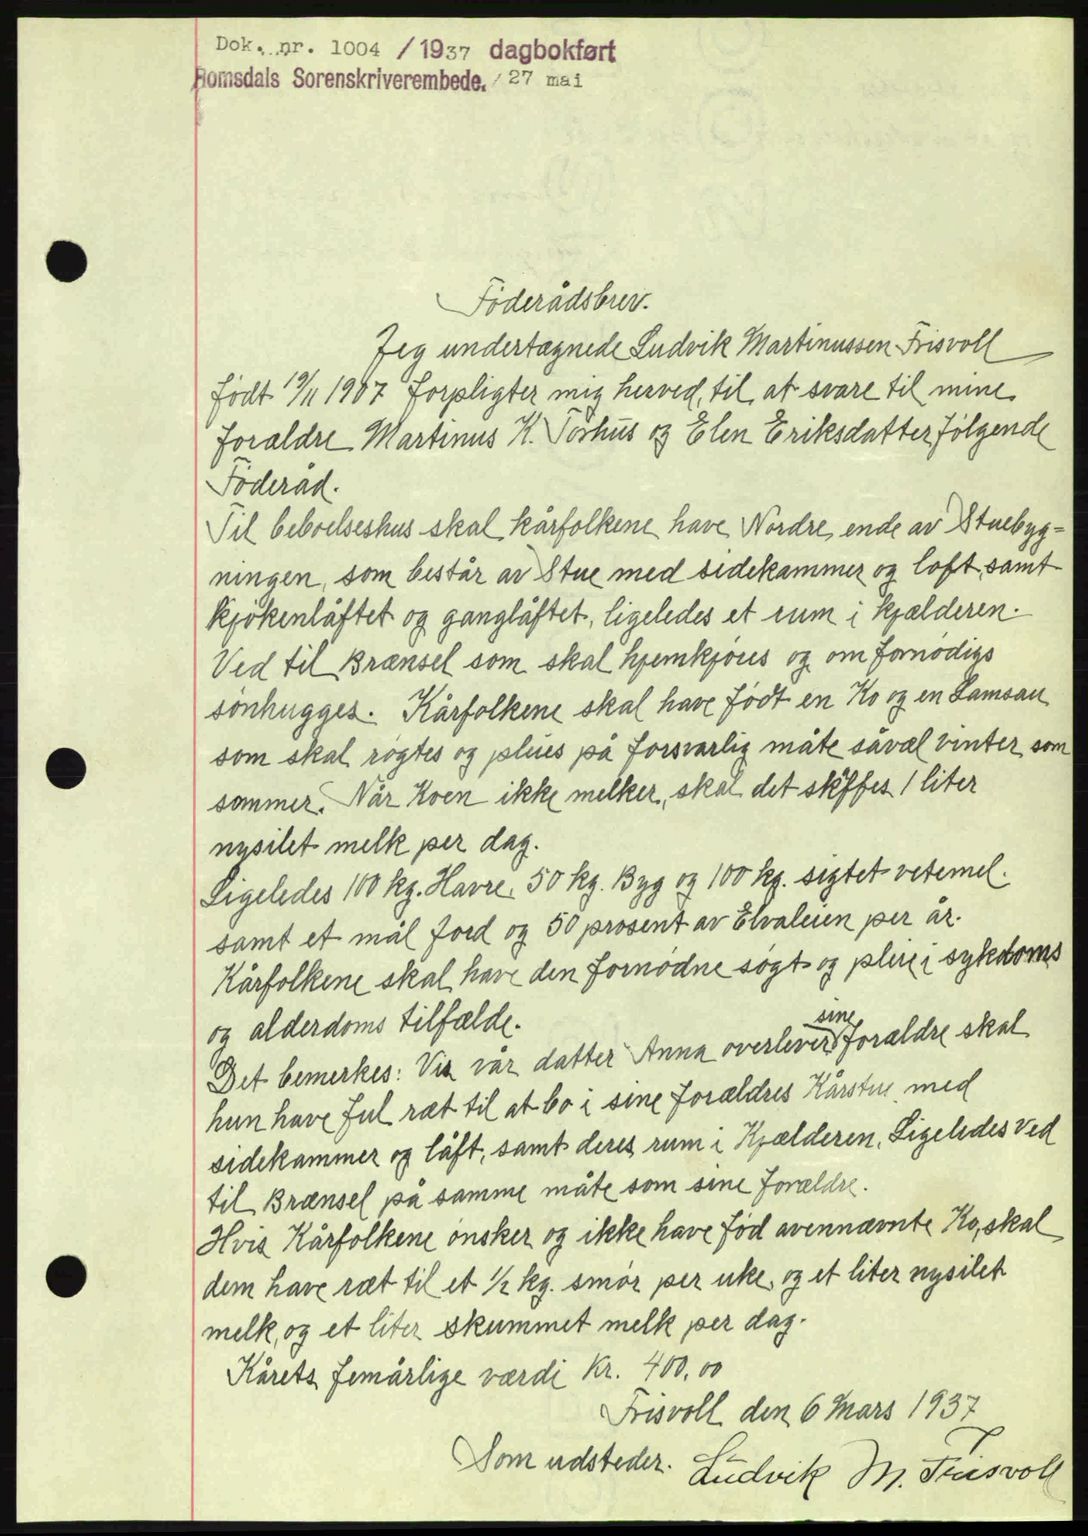 Dok. nr. 1004 /1937 dagbokført
Romsdals Sorenskriverembede. 27 mai
Föderådsbrev.
Jeg undertægnede Ludvik Martinussen Frisvoll
født 19/11 1907 forpligter mig herved, til at svare til mine
forældre Martinus K. Torhus og Elen Eriksdatter følgende
Föderåd.
Til beboelseshus skal kårfolkene have Nordre ende av Stuebyg-
ningen, som består av Stue med sidekammer og loft, samt
kjökenlåftet og ganglåftet, ligeledes et rum i kjælderen.
Ved til Brænsel som skal hjemkjöres og om fornødigs
sönhugges. Kårfolkene skal have födt en Ko og en Lamsau
som skal rögtes og pleies på forsvarlig måte såvæl vinter som
sommer. Når Koen ikke melker, skal det skaffes 1 liter
nysilet melk per dag.
Ligeledes 100 kg. Havre, 50 kg. Byg og 100 kg. sigtet vetemel.
samt et mål jord og 50 prosent av Elvaleien per år.
Kårfolkene skal have den fornødne søgt og pleie i sykdoms
og alderdoms tilfælde.
Det bemerkes: Vis vår datter Anna overlever sine forældre skal
hun have ful ræt til at bo i sine forældres Kårstue med
sidekammer og låft, samt deres rum i Kjælderen. Ligeledes Ved
til Brænsel på samme måte som sine forældre.
Hvis Kårfolkene önsker og ikke have fød avennævnte Ko, skal
dem have ræt til et 1/2 kg. smör per uke, og et liter nysilet
melk, og et liter skummet melk per dag.
Kårets femårlige værdi Kr. 400,00
Frisvoll den 6 Mars 1937
Som udsteder. Ludvik M. Frisvoll